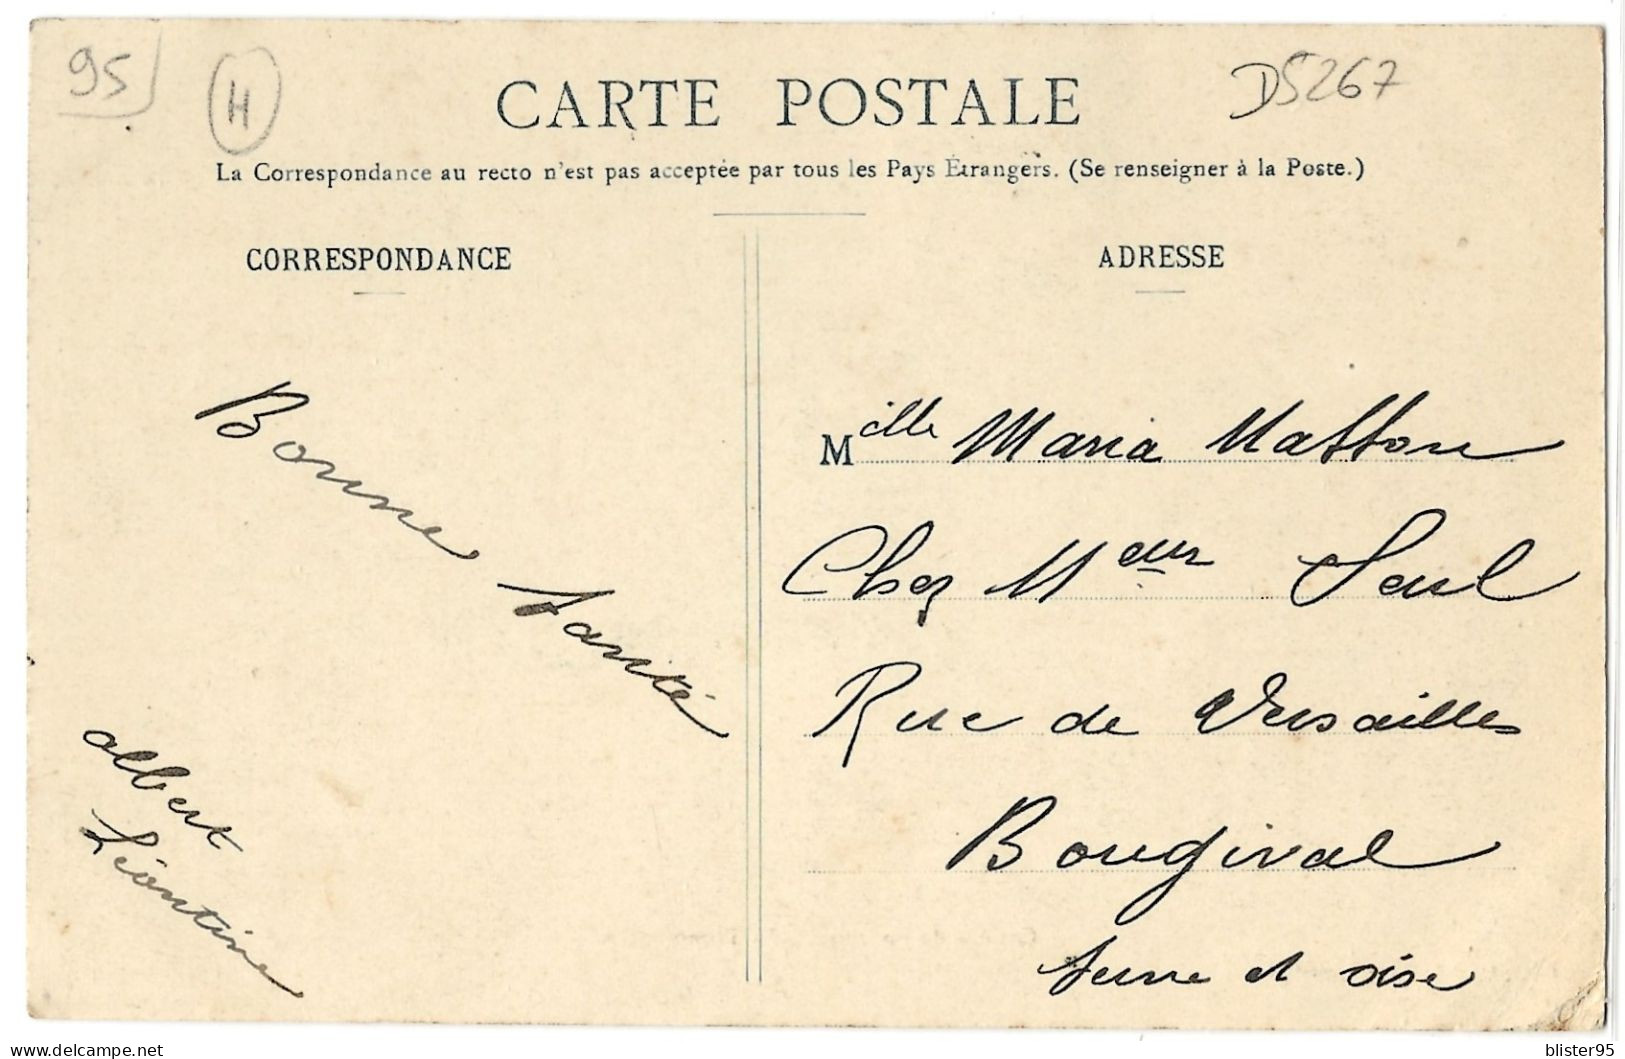 95
H
D5267
CARTE POSTALE
La Correspondance au recto n'est pas acceptée par tous les Pays Étrangers. (Se renseigner à la Poste.)
CORRESPONDANCE
ADRESSE
Bonne Santé
albert
Léontine
Melle Maria
Chez Meur
Rue de Versailles
Bougival
Seine et oise
delcampe.net
blister95